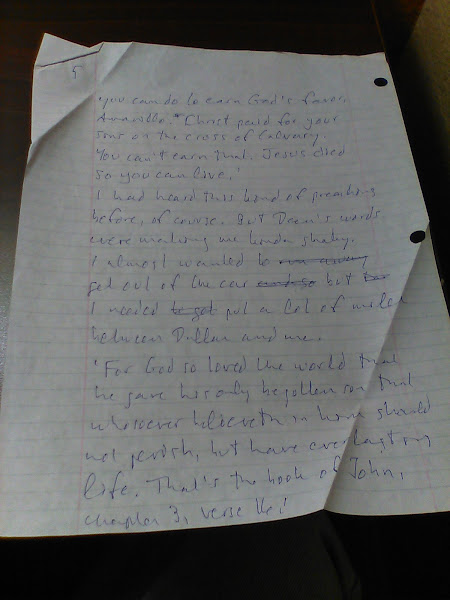 5
'you can do to earn God's favor,
Amarillo." Christ paid for your
sins on the cross of Calvary.
You can't earn that. Jesus died
so you can live.'
I had heard this kind of preaching
before, of course. But Dean's words
were making me kinda shaky.
I almost wanted to run away
get out of the car and go but
I needed to get put a lot of miles
between Dallas and me.
'For God so loved the world that
he gave his only begotten son that
whosoever believeth in him should
not perish, but have everlasting
life. That's the book of John,
chapter 3, verse 16!